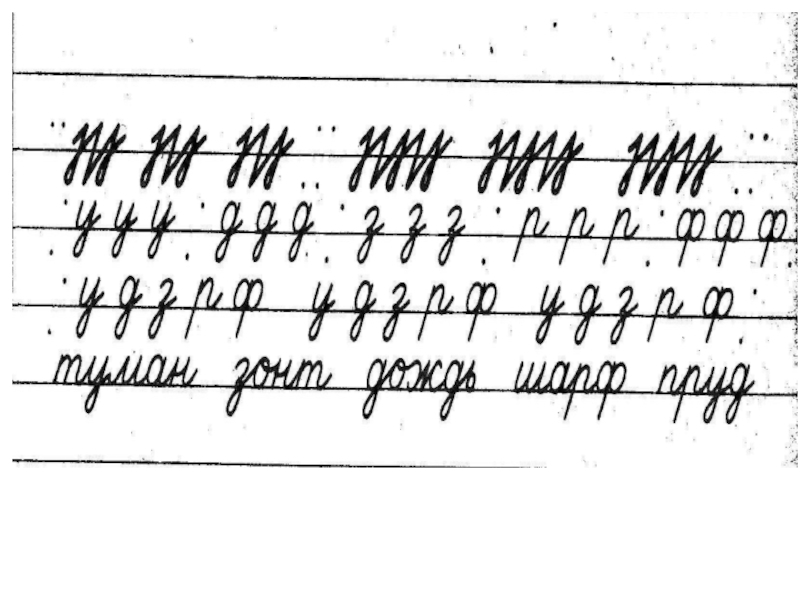 у у у д д д з з з р р р ф ф ф
у д з р ф у д з р ф у д з р ф
туман зонт дождь шарф пруд